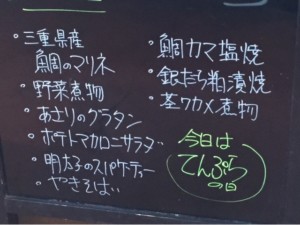 ・三重県産
鯛のマリネ
・野菜煮物
・あさりのグラタン
・ポテトマカロニサラダ
・明太子のスパゲティー
・やきそば
・鯛カマ塩焼
・銀だら粕漬焼
・茎ワカメ煮物
今日は
てんぷら
の日